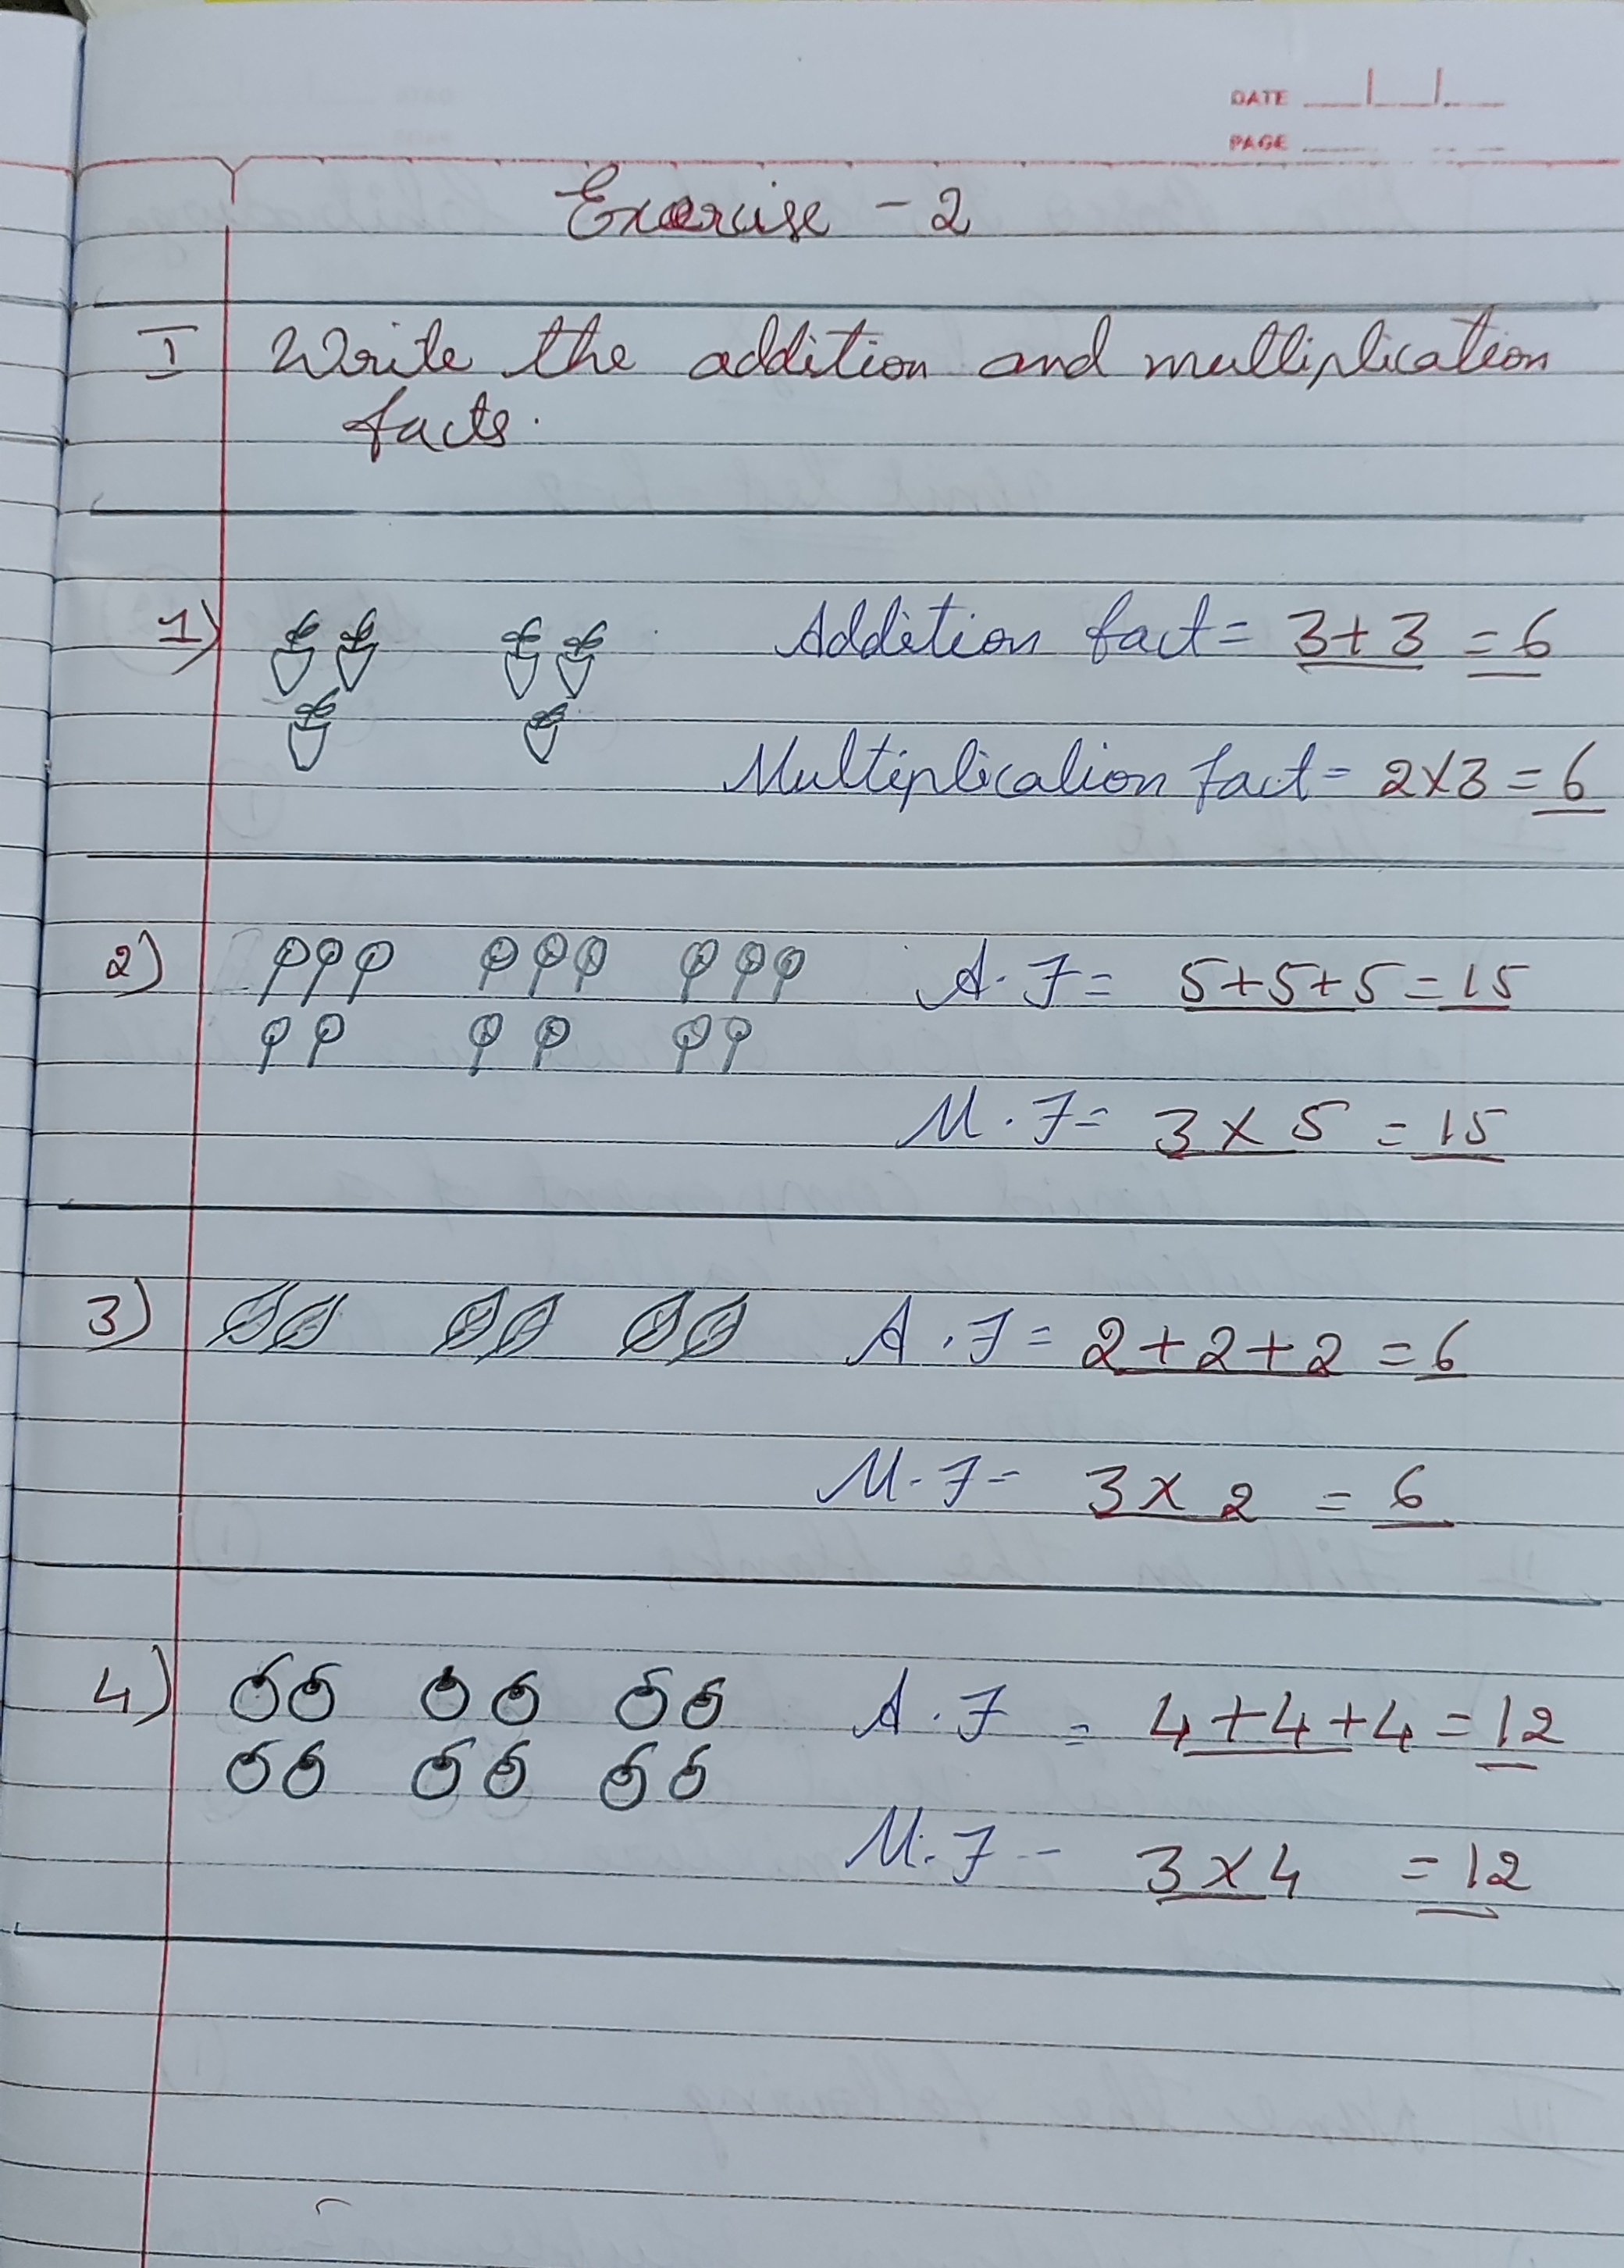 DATE
PAGE
Exercise - 2
I Write the addition and multiplication
facts.
1) Addition fact = 3+3 = 6
Multiplication fact = 2×3 = 6
2) A.F = 5+5+5 = 15
M.F = 3 × 5 = 15
3) A.F = 2+2+2 = 6
M.F = 3 × 2 = 6
4) A.F = 4+4+4 = 12
M.F - 3×4 = 12